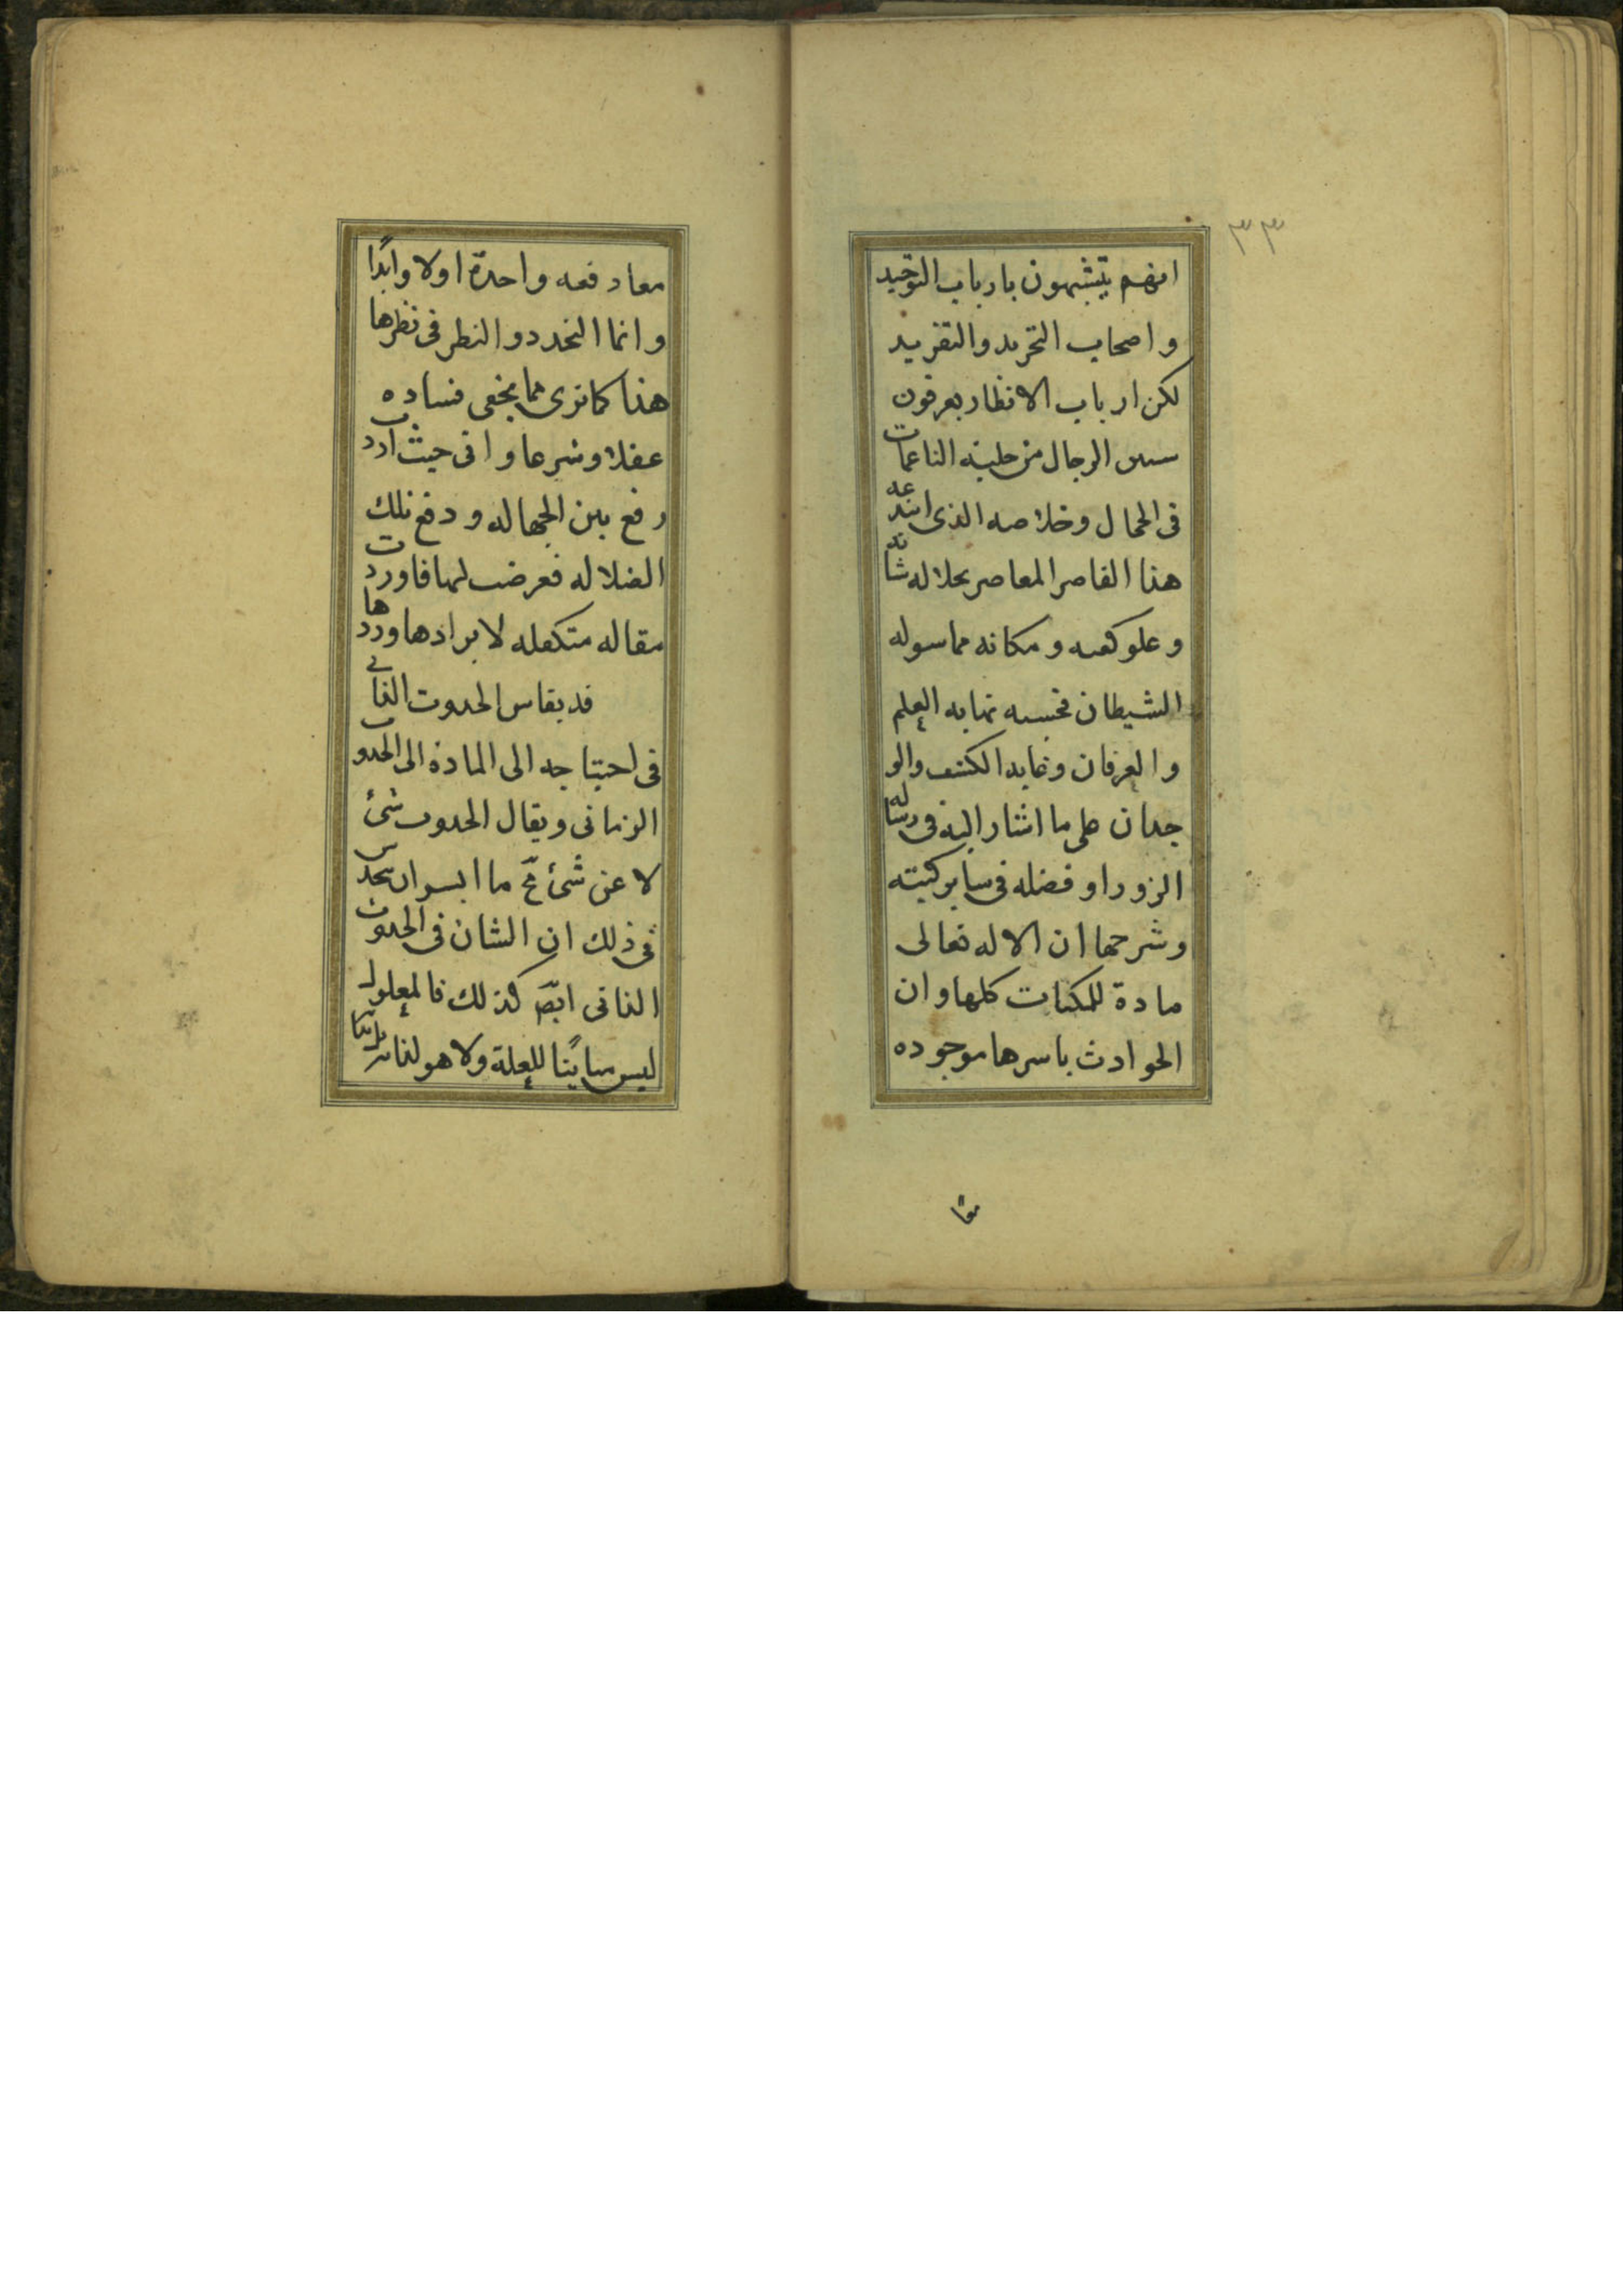 ٣٣
انهم يتشبهون بارباب التوحيد
واصحاب التجريد والتفريد
لكن ارباب الانظار يعرفون
الرجال من حلية الناعمات
فى الحجال وخلاصه الذى ابتدعه
هذا القاصر المعاصر بجلاله شانه
وعلو كعبه ومكانه مما سوله
الشيطان فحسبه نهايه العلم
والعرفان وغايه الكشف والو
جدان على ما اشار اليه فى رساله
الزورا وفضله فى ساير كتبه
وشرحها ان الاله تعالى
مادة للمكنات كلها وان
الحوادث باسرها موجوده
معا
معا دفعه واحدة اولا وابدًا
وانما التجدد والنظر فى نظرها
هذا كما ترى مما يخفى فساده
عقلا وشرعا وانى حيث اردت
رفع بين الجهاله ودفع تلك
الضلاله فعرضت لها فاوردت
مقاله متكفله لايرادها وردها
قد يقاس الحدوث الذاتى
فى احتياجه الى المادة الى الحدوث
الزمانى ويقال الحدوث شئ
لا عن شئ مح ما ايسوان يحدس
فى ذلك ان الشان فى الحدوث
الذاتى ايضً كذلك فالمعلول
ليس مباينًا للعلة ولا هو لذاته